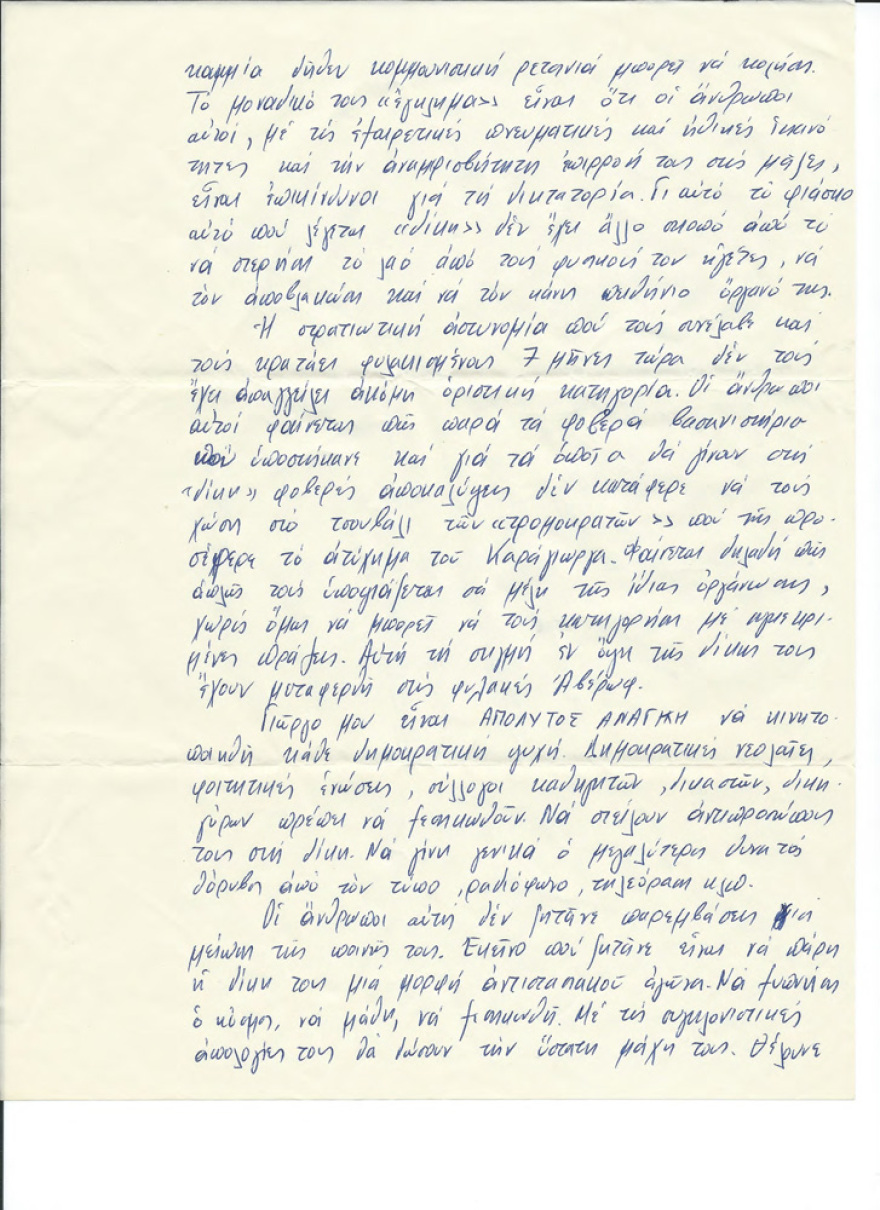 καμμία δῆθεν κομμουνιστική ρετσινιά μπορεῖ νά κολήσει.
Τό μοναδικό τους «ἔγκλημα» εἶναι ὅτι οἱ ἄνθρωποι
αὐτοί, μέ τίς ἐξαιρετικές πνευματικές καί ἠθικές ἱκανό
τητες καί τήν ἀναμφισβήτητη ἐπιρροή τους στίς μάζες,
εἶναι ἐπικίνδυνοι γιά τή δικτατορία. Γι αὐτό τό φιάσκο
αὐτό πού λέγεται «δίκη» δέν ἔχει ἄλλο σκοπό ἀπό τό
νά στερήσει τό λαό ἀπό τούς φυσικούς του ἡγέτες, νά
τόν ἀποβλακώση καί νά τόν κάνη πειθήνιο ὄργανό της.
Ἡ στρατιωτική ἀστυνομία πού τούς συνέλαβε καί
τούς κρατάει φυλακισμένους 7 μῆνες τώρα δέν τούς
ἔχει ἀπαγγείλει ἀκόμη ὁριστική κατηγορία. Οἱ ἄνθρωποι
αὐτοί φαίνεται πῶς παρά τά φοβερά βασανιστήρια
πού ὑποστήκανε καί γιά τά ὁποῖα θά γίνουν στή
«δίκη» φοβερές ἀποκαλύψεις δέν κατάφερε νά τούς
χώση στό τσουβάλι τῶν «τρομοκρατῶν» πού τῆς προ-
σέφερε τό ἀτύχημα τοῦ Καράγιωργα. Φαίνεται δηλαδή πῶς
ἁπλῶς τούς ὑποψιάζεται σά μέλη τῆς ἴδιας ὀργάνωσης,
χωρίς ὅμως νά μπορεῖ νά τούς κατηγορήσει μέ συγκεκρι-
μένες πράξεις. Αὐτή τή στιγμή ἐν ὄψη τῆς δίκης τους
ἔχουν μεταφερθῆ στίς φυλακές Ἀβέρωφ.
Γιῶργο μου εἶναι ΑΠΟΛΥΤΟΣ ΑΝΑΓΚΗ νά κινητο-
ποιηθῆ κάθε δημοκρατική ψυχή. Δημοκρατικές νεολαῖες,
φοιτητικές ἑνώσεις, σύλλογοι καθηγητῶν, δικαστῶν, δικη-
γόρων πρέπει νά ξεσηκωθοῦν. Νά στείλουν ἀντιπροσώπους
τους στή δίκη. Νά γίνη γενικά ὁ μεγαλύτερος δυνατός
θόρυβος ἀπό τόν τύπο, ραδιόφωνο, τηλεόραση κλπ.
Οἱ ἄνθρωποι αὐτοί δέν ζητᾶνε παρεμβάσεις γιά
μείωση τῆς ποινῆς τους. Ἐκεῖνο πού ζητᾶνε εἶναι νά πάρη
ἡ δίκη τους μιά μορφή ἀντιστασιακοῦ ἀγώνα. Νά ξυπνήσει
ὁ κόσμος, νά μάθη, νά ξεσηκωθῆ. Μέ τίς συγκλονιστικές
ἀπολογίες τους θά δώσουν τήν ὕστατη μάχη τους. Θέλουνε